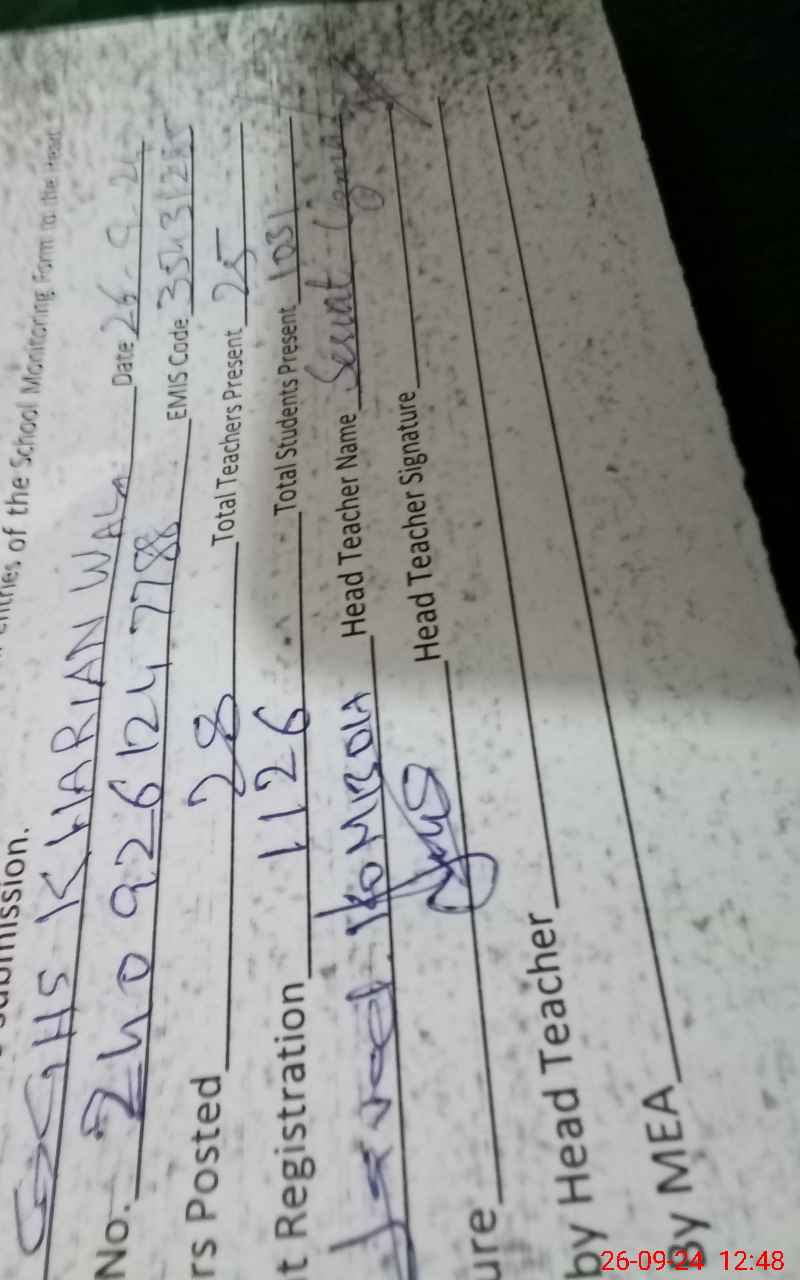 entries of the School Monitoring Form to the Head
submission.
GGHS KHARIAN WALA Date 26-9-24
No. 2409261247788 EMIS Code
rs Posted 28 Total Teachers Present 25
t Registration 1126 Total Students Present 1031
Javed Head Teacher Name
ure Head Teacher Signature
by Head Teacher
By MEA
26-09-24 12:48